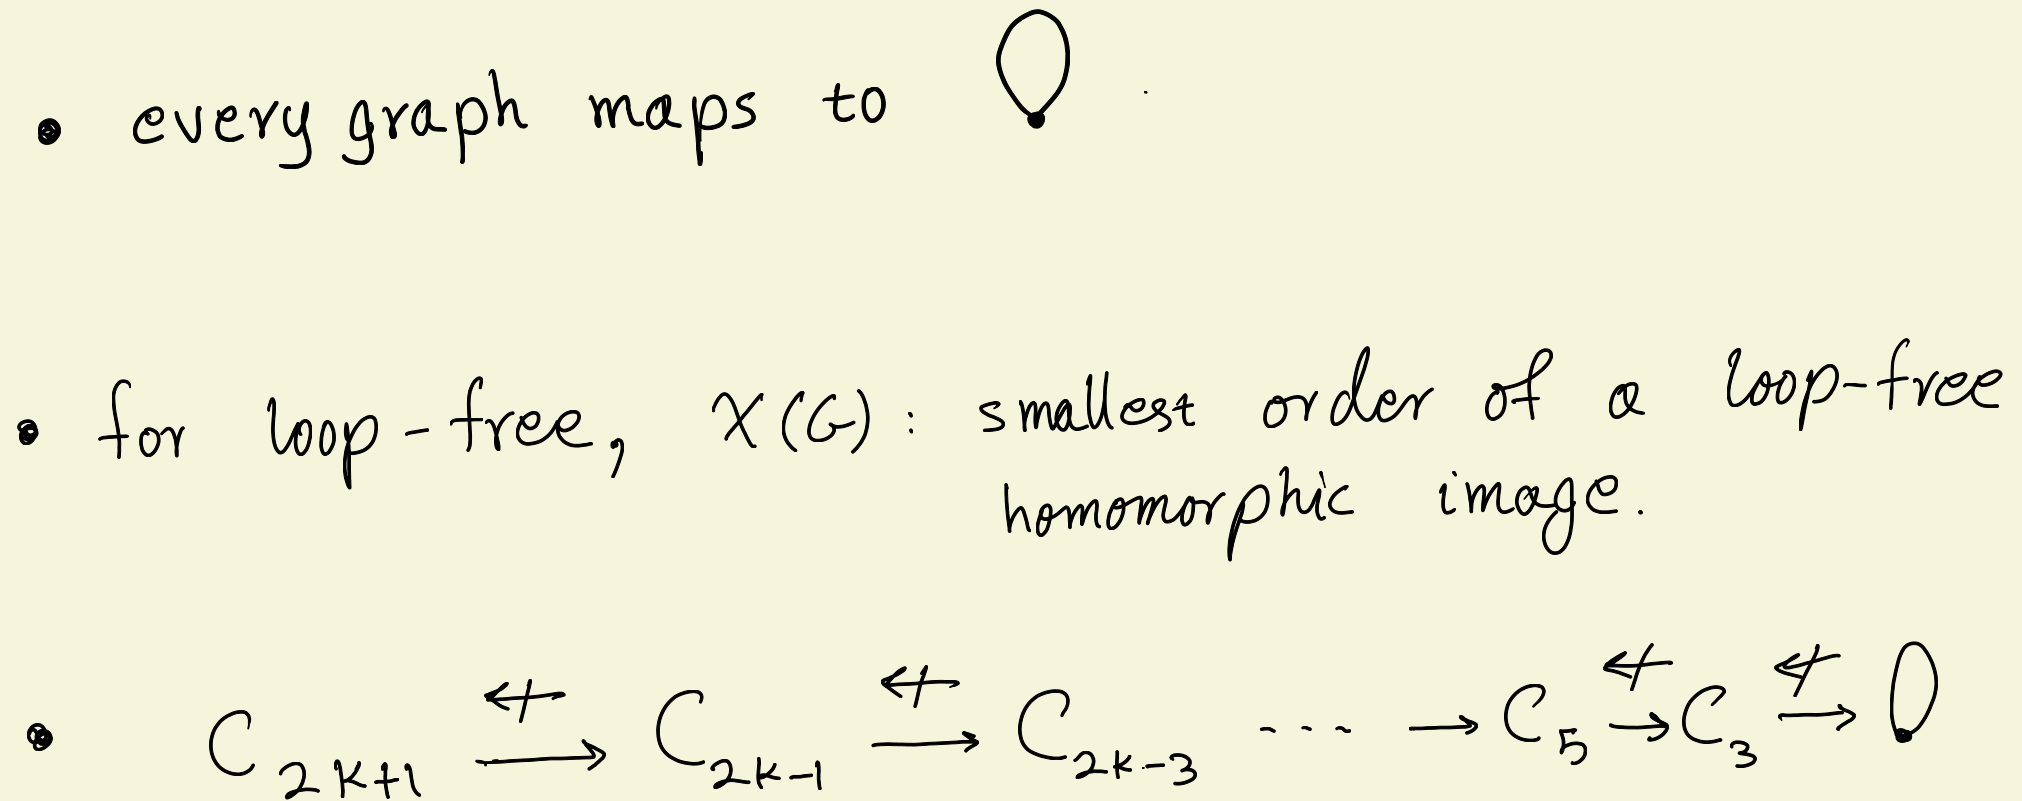 • every graph maps to
• for loop-free, χ(G): smallest order of a loop-free
homomorphic image.
• C_{2k+1} ↚ → C_{2k-1} ↚ → C_{2k-3} --- → C_5 ↚ → C_3 ↚ →